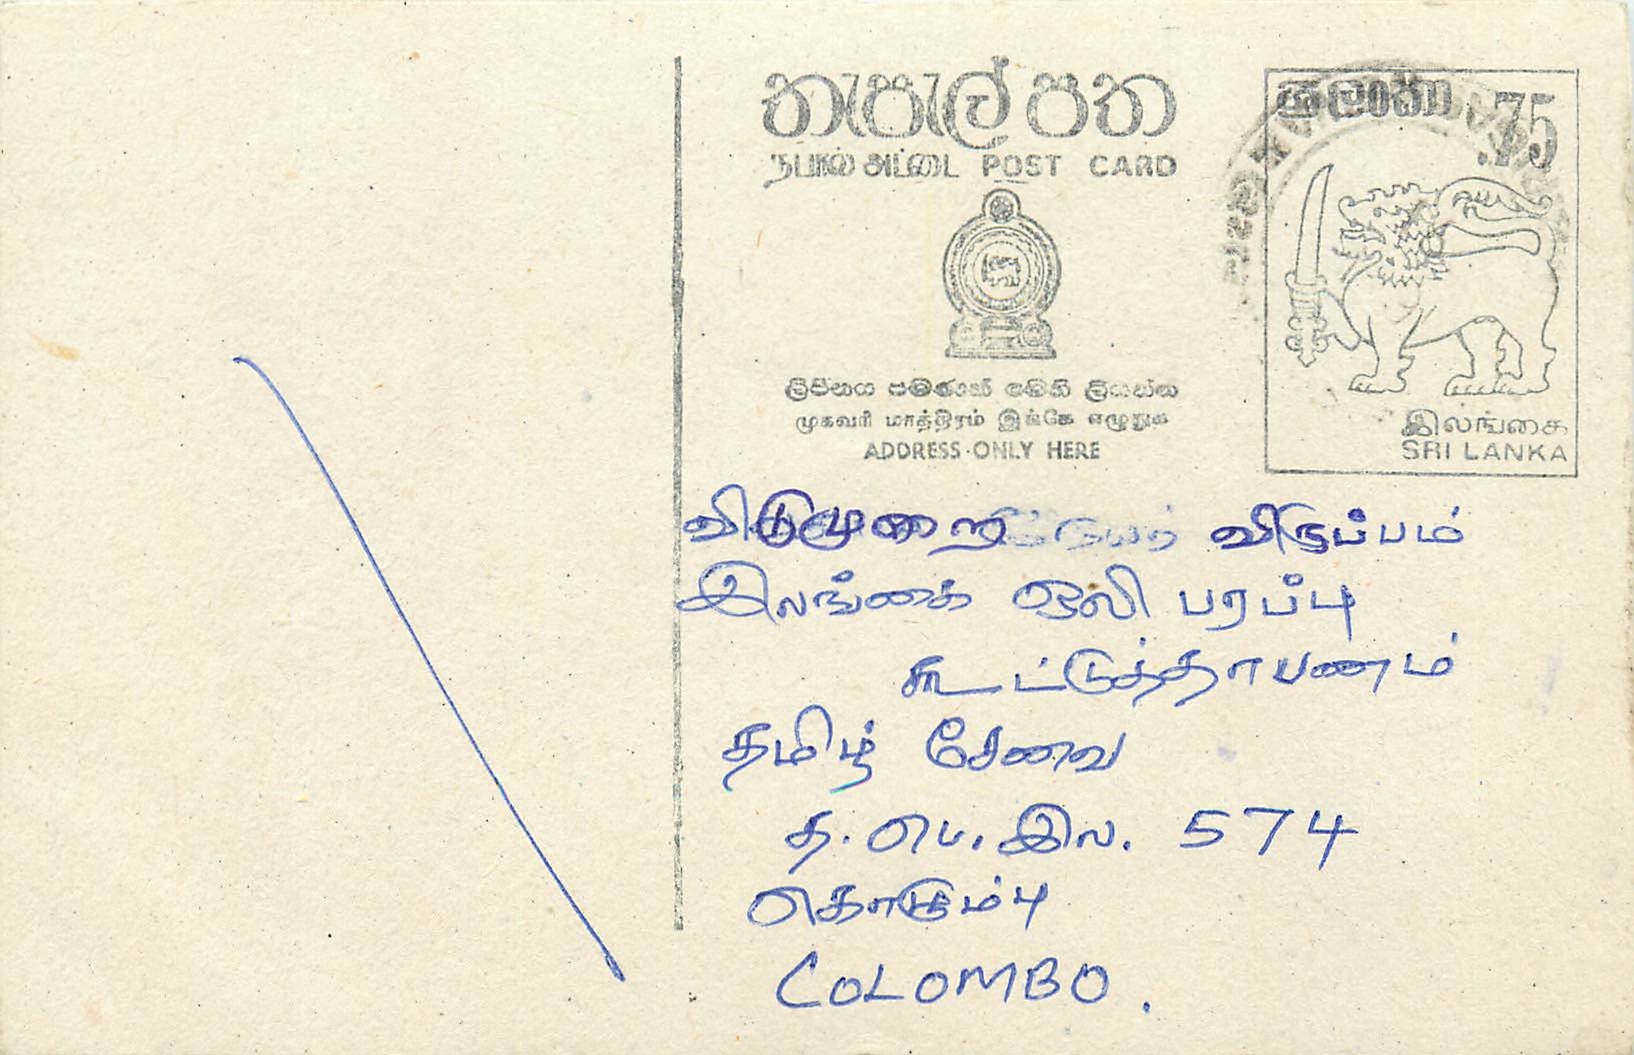 තැපැල් පත
தபால் அட்டை POST CARD
ශ්‍රී ලංකා .75
ලිපිනය පමණක් මෙහි ලියන්න
முகவரி மாத்திரம் இங்கே எழுதுக
ADDRESS ONLY HERE
இலங்கை
SRI LANKA
விடுமுறை விருப்பம்
இலங்கை ஒலி பரப்பு
கூட்டுத்தாபணம்
தமிழ் சேவை
த.பெ.இல. 574
கொழும்பு
COLOMBO.